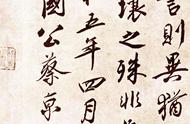 言則異猶
壤之殊非
十五年四月
國公蔡京